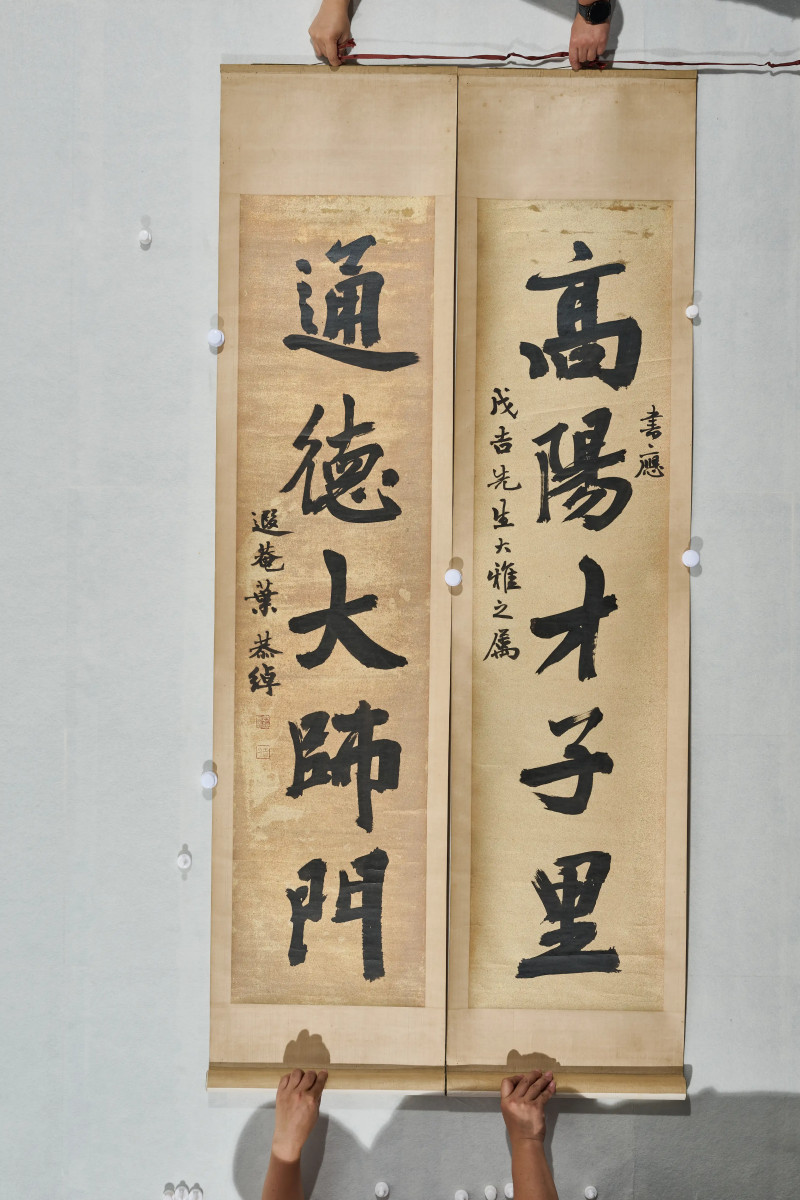 高陽才子里
書應
戊吉先生大雅之属
通德大師門
遐菴葉恭綽